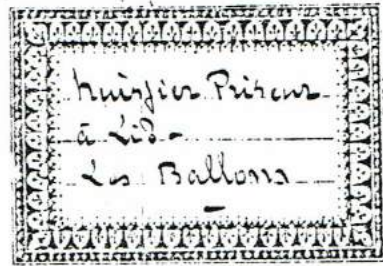 huissier Priseur
à Lis-
Les Ballons